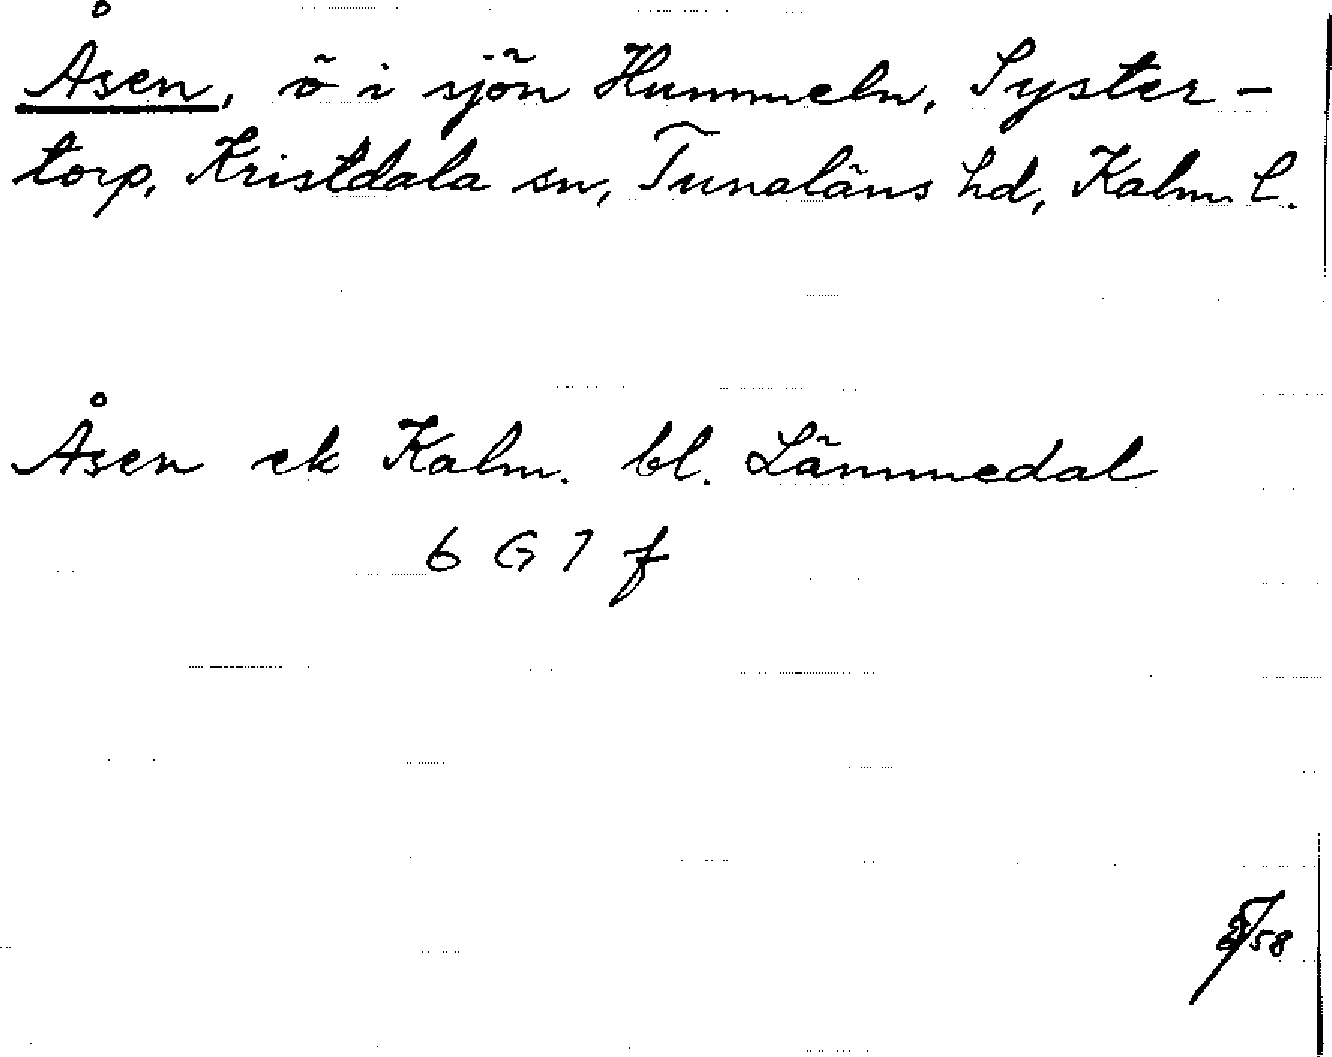 Åsen, ö i sjön Hummeln, Syster-
torp, Kristdala sn, Tunaläns hd, Kalm. l.
Åsen ek Kalm. bl. Lämmedal
6 G 7 f
58